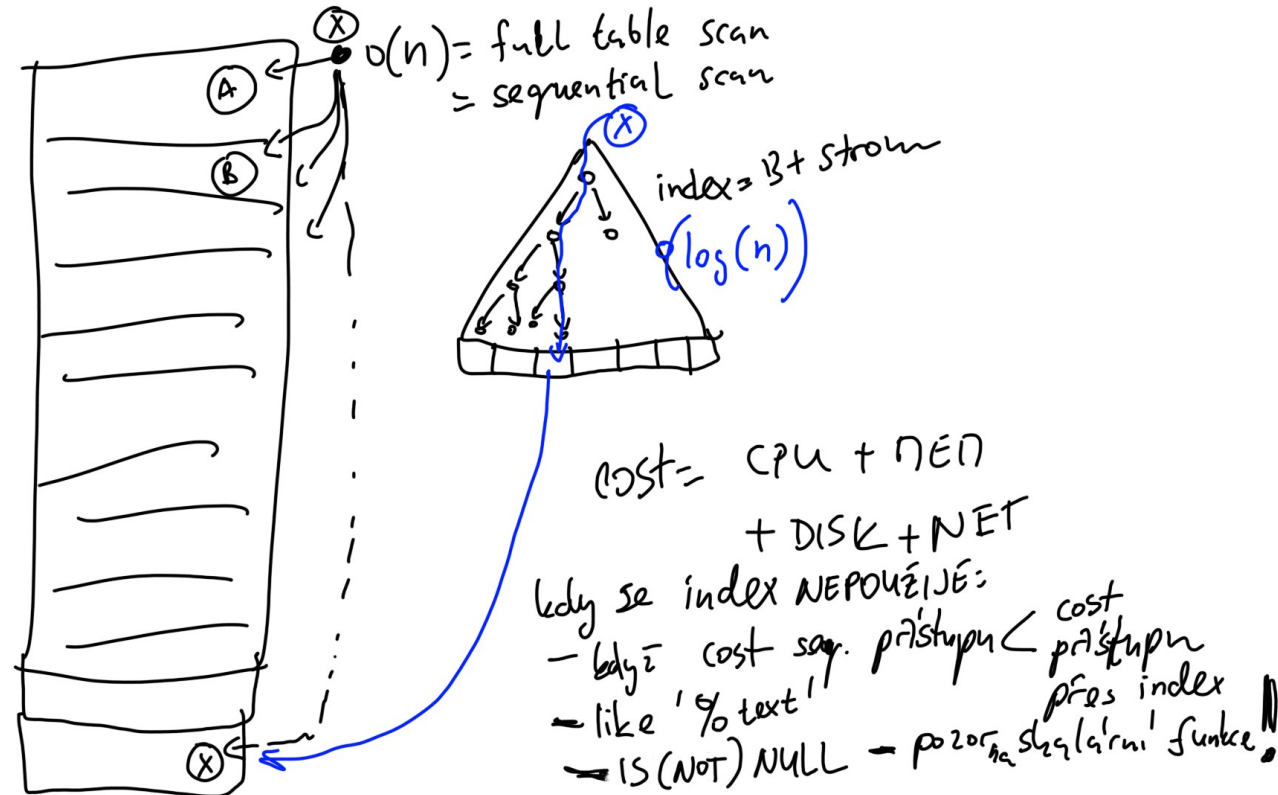 X
O(n) = full table scan
= sequential scan
A
B
X
index = B+ strom
O(log(n))
cost = CPU + MEM
+ DISK + NET
kdy se index NEPOUŽIJE:
- když cost seq. přístupu < cost přístupu přes index
- like '%text'
- IS (NOT) NULL - pozor na skalární funkce!
X